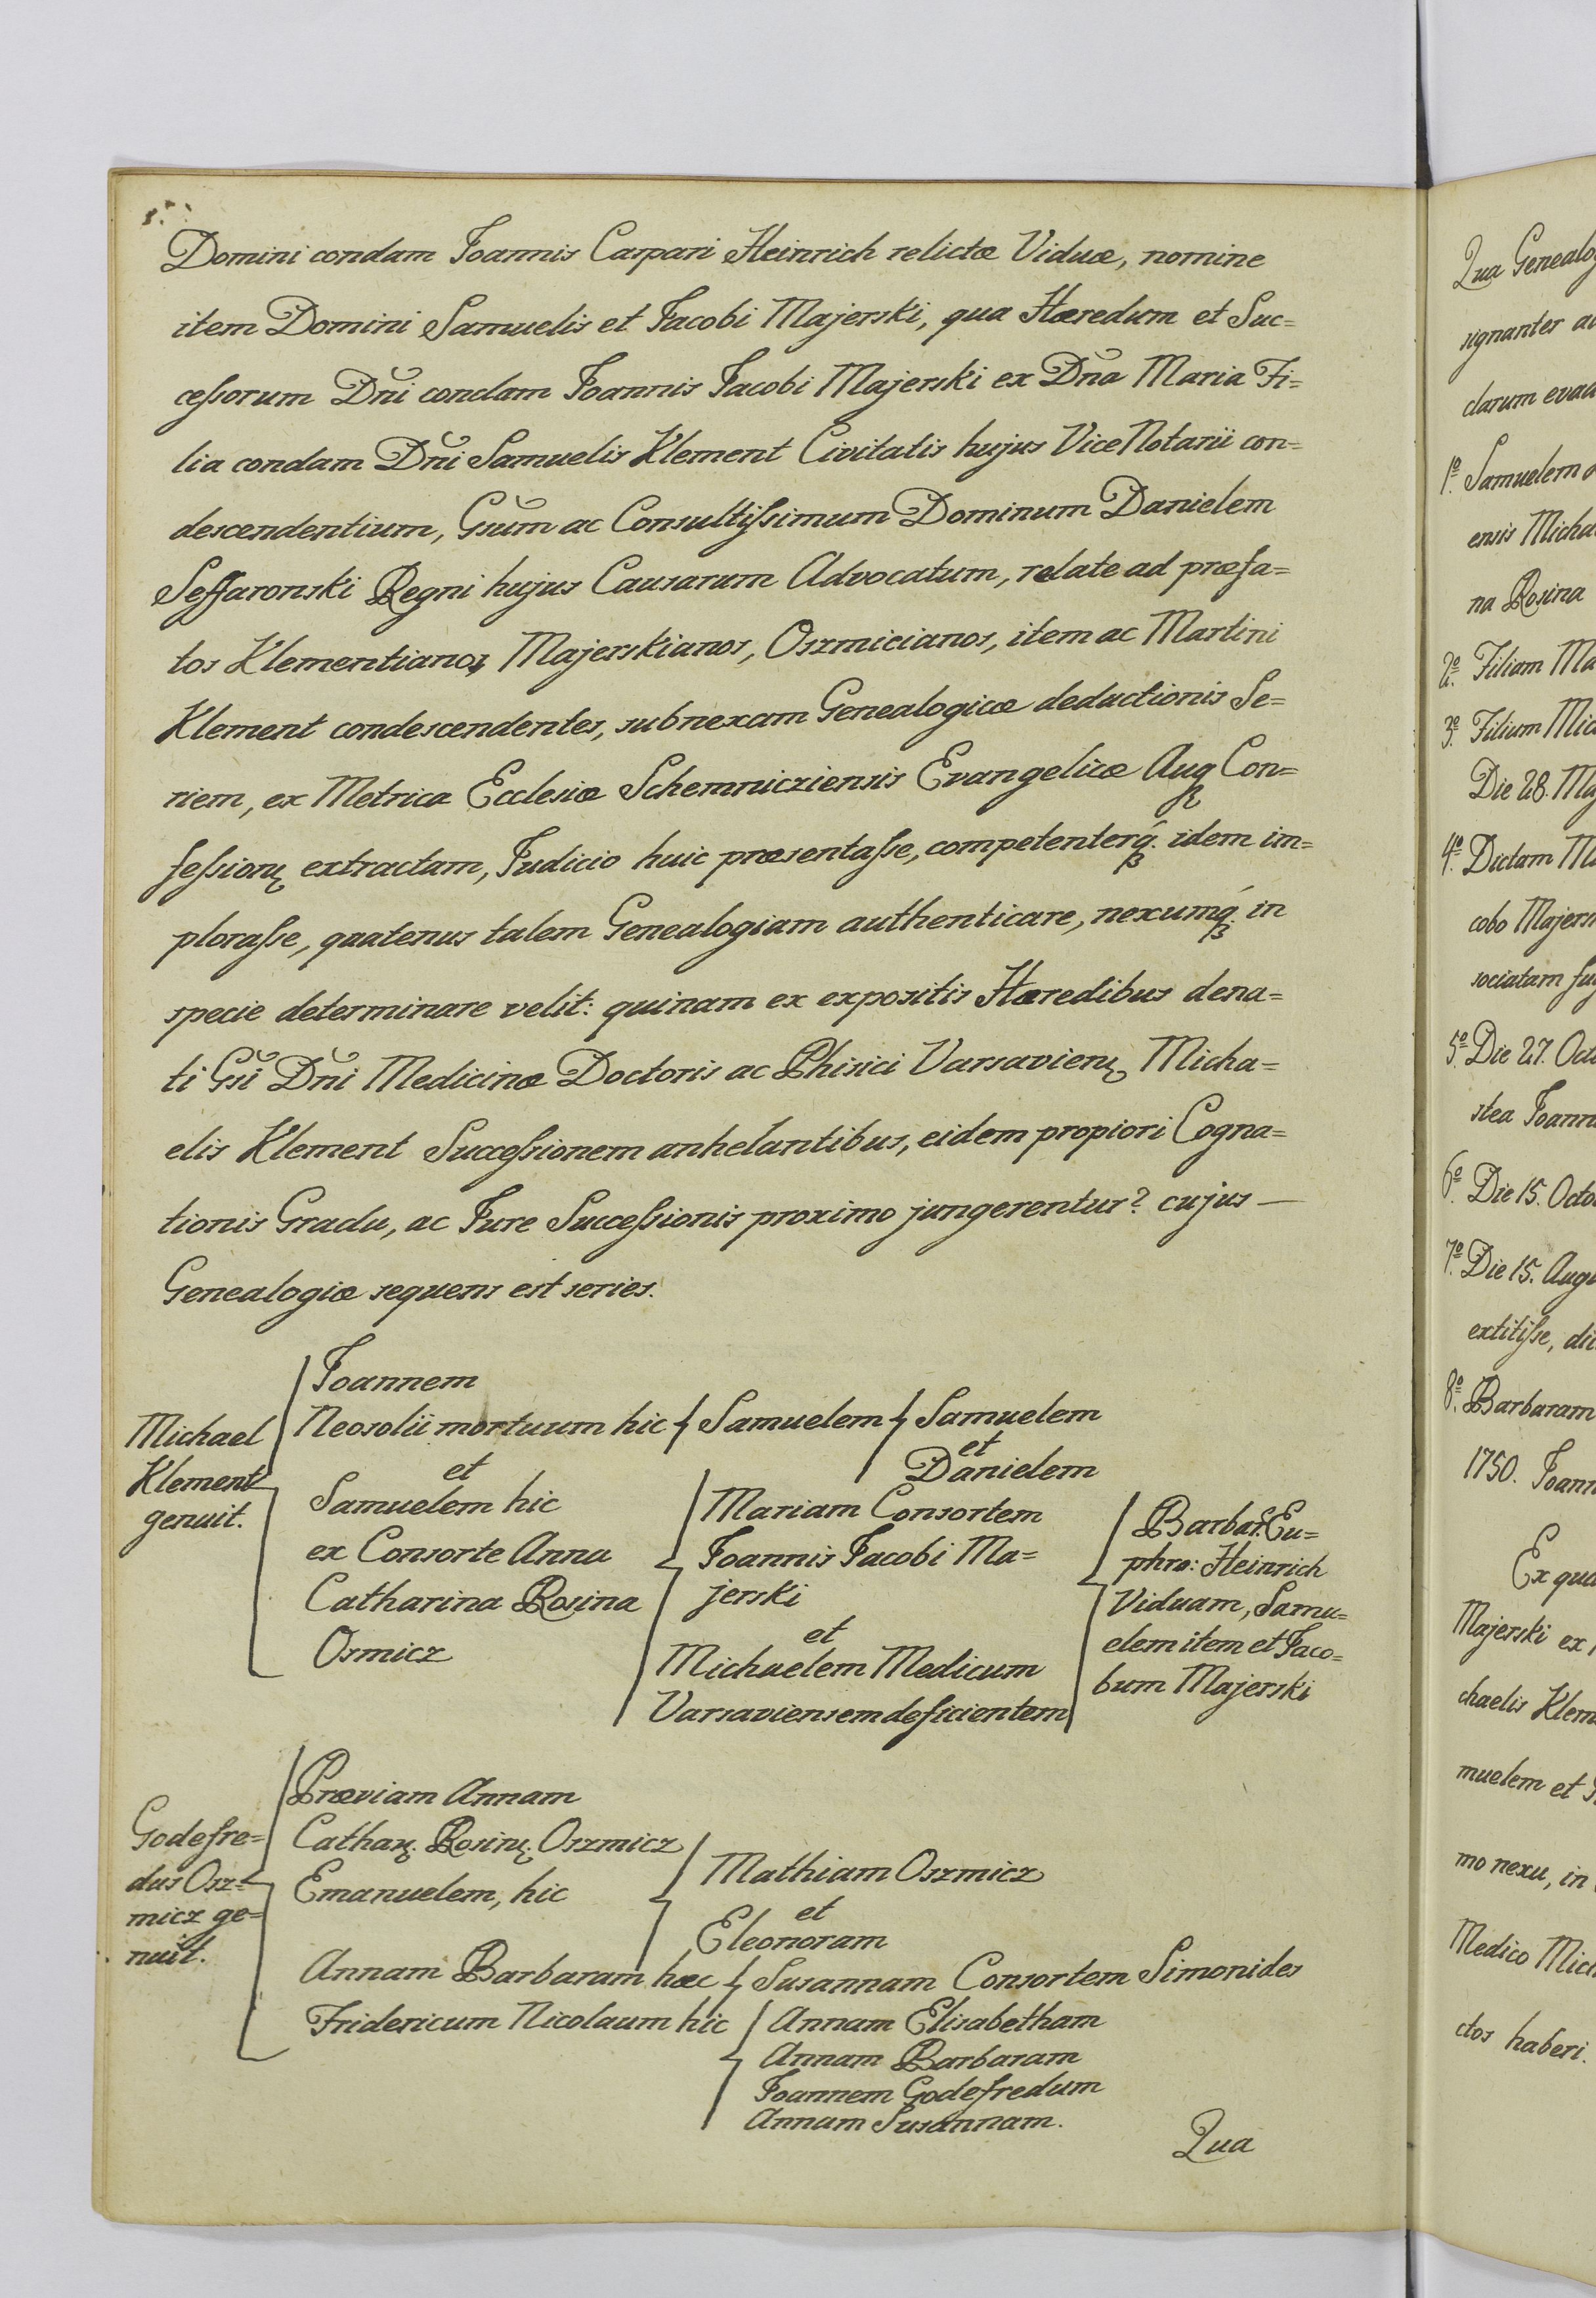 Domini condam Joannis Caspari Heinrich relictæ Viduæ, nomine
item Domini Samuelis et Jacobi Majerski, qua Hæredum et Suc=
ceßorum Dni condam Joannis Jacobi Majerski ex Dna Maria Fi=
lia condam Dni Samuelis Klement Civitatis hujus ViceNotarii con=
descendentium, Gsum ac Consultißimum Dominum Danielem
Seffaronski Regni hujus Causarum Advocatum, relate ad præfa=
tos Klementianos, Majerskianos, Oszmicianos, item ac Martini
Klement condescendentes, subnexam Genealogicæ deductionis Se=
riem, ex Metrica Ecclesiæ Schemnicziensis Evangelicæ Aug Con=
feßion extractam, Judicio huic præsentaße, competenterq. idem im=
ploraße, quatenus talem Genealogiam authenticare, nexumq. in
specie determinare velit: quinam ex expositis Hæredibus dena=
ti Gsi Dni Medicinæ Doctoris ac Phisici Varsavien Micha=
elis Klement Succeßionem anhelantibus, eidem propiori Cogna=
tionis Gradu, ac Jure Succeßionis proximo jungerentur? cujus —
Genealogiæ sequens est series.
Michael
Klement
genuit.
Joannem
Neosolii mortuum hic { Samuelem { Samuelem
et
Danielem
et
Samuelem hic
ex Consorte Anna
Catharina Rosina
Osmicz
Mariam Consortem
Joannis Jacobi Ma=
jerski
et
Michaelem Medicum
Varsaviensem deficientem
Barbar. Eu=
phro: Heinrich
Viduam, Samu=
elem item et Jaco=
bum Majerski
Godefre=
dus Osz=
micz ge=
nuit.
Præviam Annam
Cathar. Rosin. Oszmicz
Emanuelem, hic
Mathiam Oszmicz
et
Eleonoram
Annam Barbaram hæc { Susannam Consortem Simonides
Fridericum Nicolaum hic
Annam Elisabetham
Annam Barbaram
Joannem Godefredum
Annam Susannam.
Qua
Qua
signanter
clarum
1º. Samuelem
ensis
na Rosina
2º. Filiam
3º. Filium
Die 28.
4º. Dictam
cobo
sociatam
5º. Die 27.
stea
6º. Die 15.
7º. Die 15.
extitiße,
8º. Barbaram
1750.
Ex
Majerski ex
chaelis
muelem et
mo nexu, in
Medico
ctos haberi.